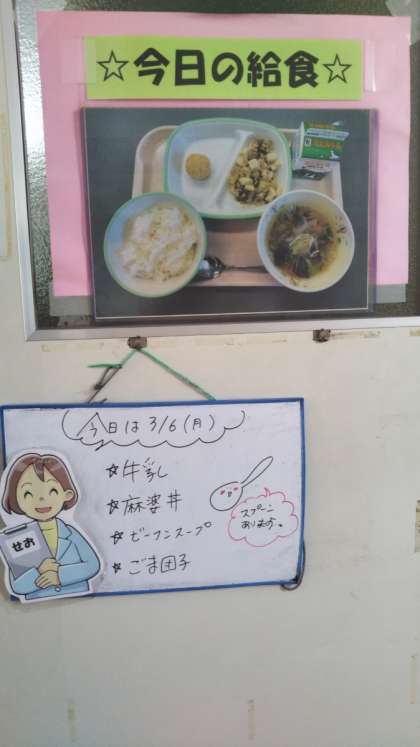 ☆今日の給食☆
今日は3/6(月)
☆牛乳
☆麻婆丼
☆ビーフンスープ
☆ごま団子
スプーン
あります。
せお